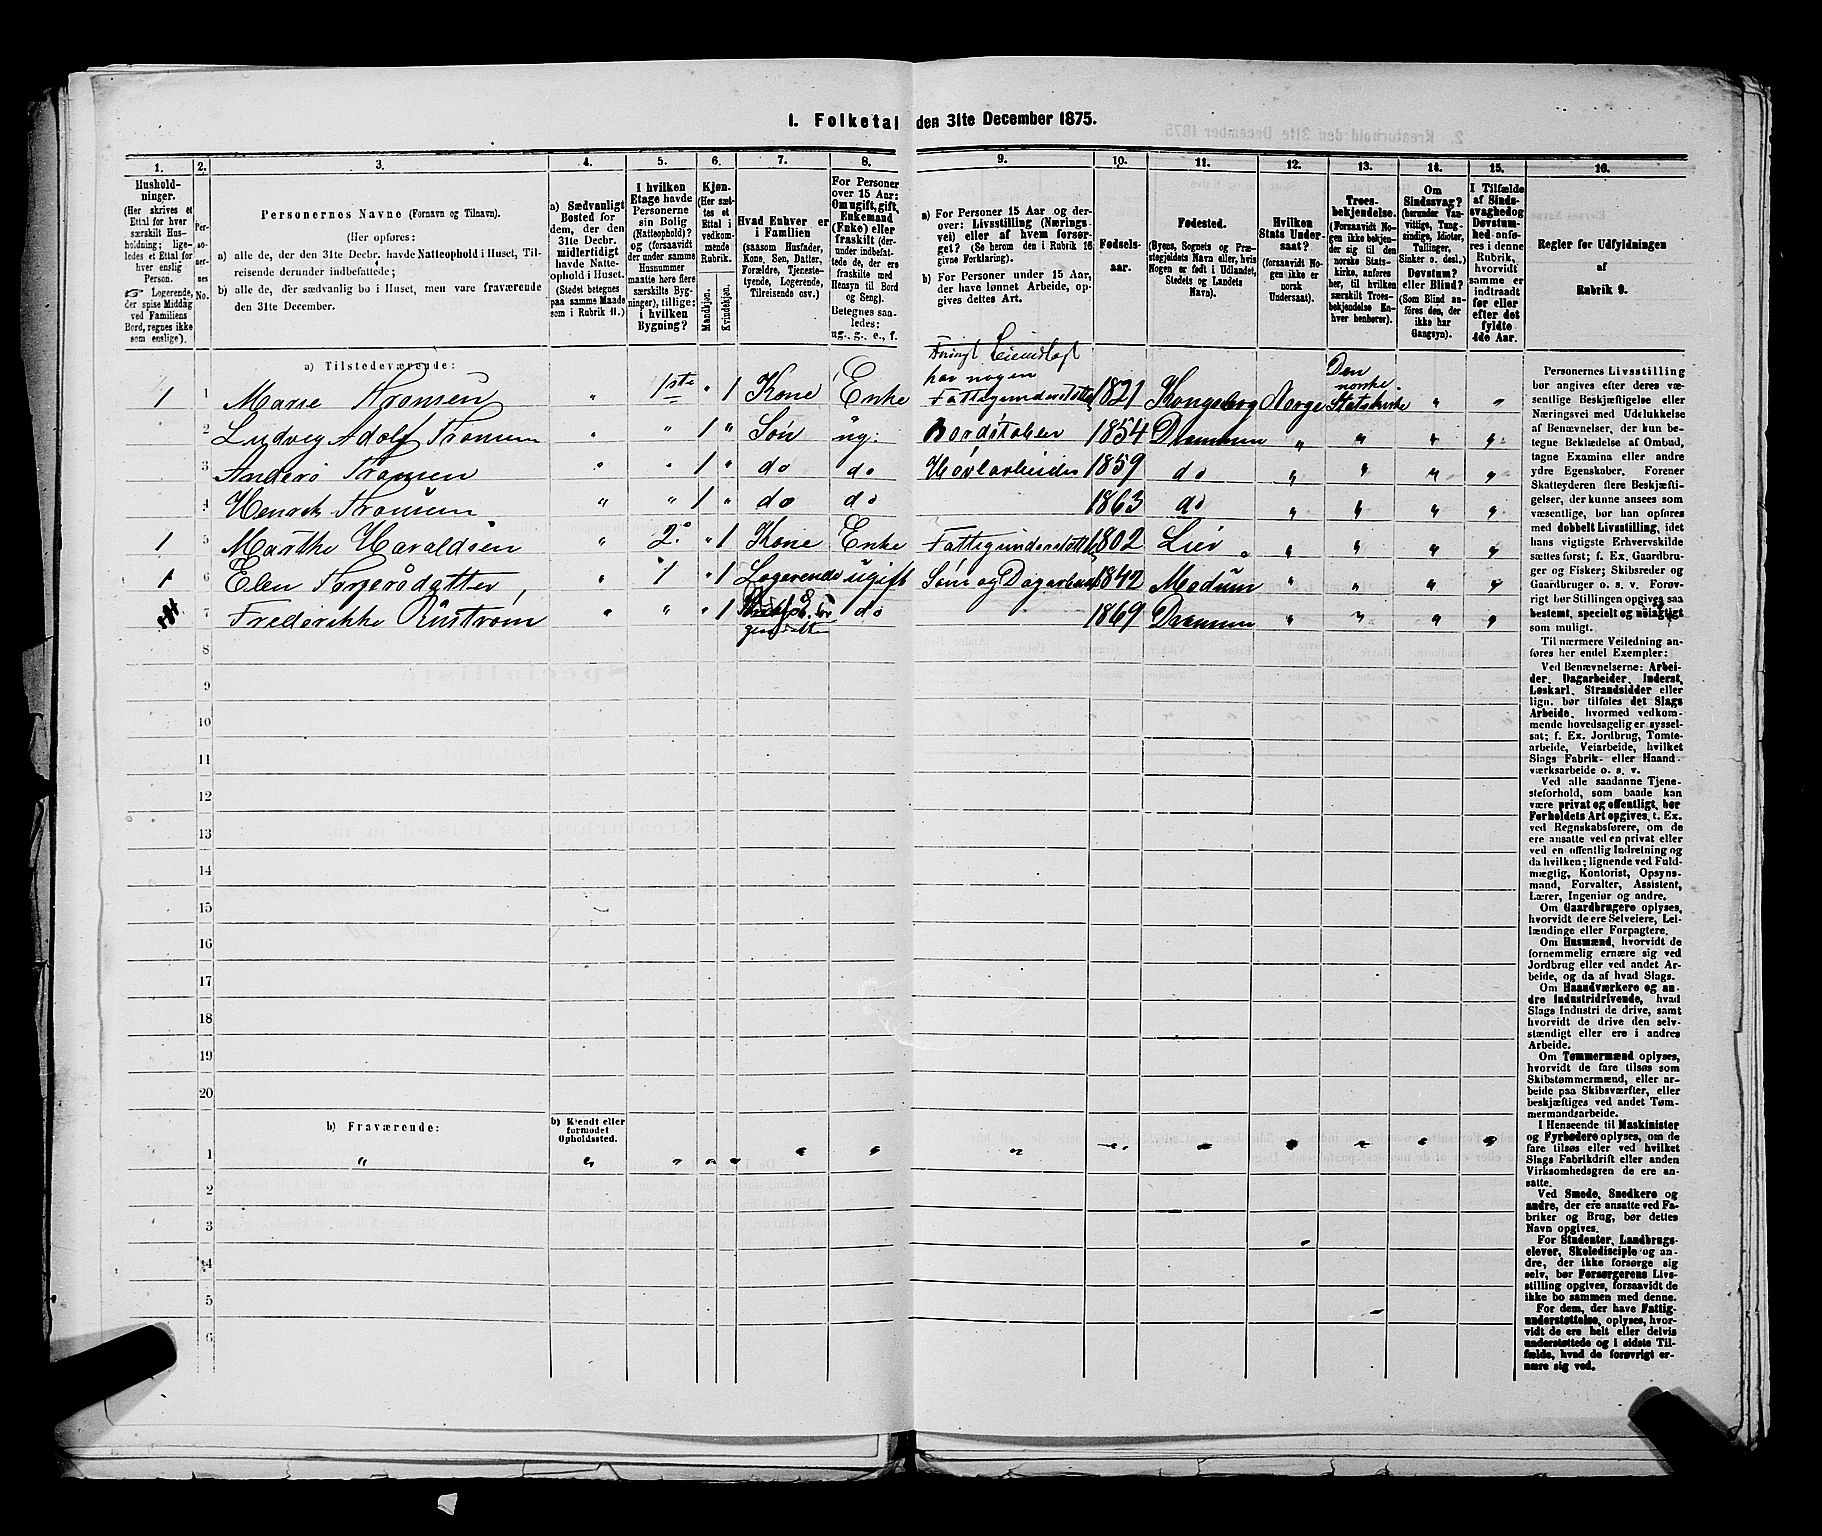 1. Folketal den 31te December 1875.
1. 2. 3. 4. 5. 6. 7. 8. 9. 10. 11. 12. 13. 14. 15. 16.
Hushold-
ninger.
(Her skrives et
Ettal for hver
særskilt Hus-
holdning; lige-
ledes et Ettal for
hver enslig
Person.
☞ Logerende,
der spise Middag
ved Familiens
Bord, regnes ikke
som enslige).
Per-
so-
ner-
nes
No.
Personernes Navne (Fornavn og Tilnavn).
(Her opføres:
a) alle de, der den 31te Decbr. havde Natteophold i Huset, Til-
reisende derunder indbefattede;
b) alle de, der sædvanlig bo i Huset, men vare fraværende
den 31te December.
a) Sædvanligt
Bosted for
dem, der den
31te Decbr.
midlertidigt
havde Natte-
ophold i Huset.
(Stedet betegnes
paa samme Maade
som i Rubrik 11.)
I hvilken
Etage havde
Personerne
sin Bolig
(Natteophold)?
og (forsaavidt
der under samme
Husnummer
maatte høre flere
særskilte Byg-
ninger), tillige:
i hvilken
Bygning?
Kjøn.
(Her sæt-
tes et
Ettal i
vedkom-
mende
Rubrik.
Mandkjøn.
Kvindekjøn.
Hvad Enhver er
i Familien
(saasom Husfader,
Kone, Søn, Datter,
Forældre, Tjeneste-
tyende, Logerende,
Tilreisende osv.)
For Personer
over 15 Aar:
Om ugift, gift,
Enkemand
(Enke) eller
fraskilt (der-
under indbefat-
tede de, der ere
fraskilte med
Hensyn til Bord
og Seng).
Betegnes saa-
ledes:
ug., g., e., f.
a) For Personer 15 Aar og der-
over: Livsstilling (Nærings-
vei) eller af hvem forsør-
get? (Se herom den i Rubrik 16
givne Forklaring).
b) For Personer under 15 Aar,
der have lønnet Arbeide, op-
gives dettes Art.
Fødsels-
aar.
Fødested.
(Byens, Sognets og Præ-
stegjeldets Navn eller, hvis
Nogen er født i Udlandet,
Stedets og Landets
Navn).
Hvilken
Stats Under-
saat?
(forsaavidt No-
gen ikke er
norsk
Undersaat).
Troes-
bekjendelse.
(Forsaavidt No-
gen ikke bekjen-
der sig til den
norske Stats-
kirke, anføres
her, til hvilken
særskilt Troes-
bekjendelse En-
hver henhører).
Om
Sindssvag?
(herunder Van-
vittige, Tung-
sindige, Idioter,
Sinker o. desl.)
Døvstum?
eller Blind?
(Som Blind an-
føres den, der
ikke har
Gangsyn).
I Tilfælde
af Sinds-
svaghed og
Døvstum-
hed anfø-
res i denne
Rubrik,
hvorvidt
samme er
indtraadt
før eller
efter det
fyldte
4de Aar.
Regler for Udfyldningen
af
Rubrik 9.
a) Tilstedeværende:
har nogen
Den
norske
1 1 Marie Fransen " 1ste " 1 Kone Enke Fattigunderstøttelse 1821 Kongsberg Norge Statskirke " "
2 Ludvig Adolf Fransen " " 1 " Søn ug: 1854 Drammen " " " "
3 Anders Fransen " " 1 " do do Høvlarbeider 1859 do " " " "
4 Henrik Fransen " " 1 " do do 1863 do " " " "
1 5 Marthe Haraldsen " 2. " 1 Kone Enke Fattigunderstøtt 1802 Lier " " " "
1 6 Elen Torgersdatter " 1 " 1 Logerende ugift Søm og Dagarbeide 1842 Modum " " " "
7 Frederikke " " " 1 do 1869 Drammen " " " "
8
9
10
11
12
13
14
15
16
17
18
19
20
b) Fraværende:
b) Kjendt eller
formodet
Opholdssted.
1 " " " " " " " " " " " " " "
2
3
4
5
6
Personernes Livsstilling
bør angives efter deres væ-
sentlige Beskjæftigelse eller
Næringsvei med Udelukkelse
af Benævnelser, der kun be-
tegne Beklædelse af Ombud,
tagne Examina eller andre
ydre Egenskaber. Forener
Skatteyderen flere Beskjæfti-
gelser, der kunne ansees som
væsentlige, bør han opføres
med dobbelt Livsstilling, idet
hans vigtigste Erhvervskilde
sættes først; f. Ex. Gaardbru-
ger og Fisker; Skibsreder og
Gaardbruger o. s. v. Forøv-
rigt bør Stillingen opgives saa
bestemt, specielt og nøiagtigt
som muligt.
Til nærmere Veiledning an-
føres her endel Exempler:
Ved Benævnelserne: Arbei-
der, Dagarbeider, Inderst,
Løskarl, Strandsidder eller
lign. bør tilføies det Slags
Arbeide, hvormed vedkom-
mende hovedsagelig er syssel-
sat; f. Ex. Jordbrug, Tomte-
arbeide, Veiarbeide, hvilket
Slags Fabrik- eller Haand-
værksarbeide o. s. v.
Ved alle saadanne Tjene-
steforhold, som baade kan
være privat og offentligt, bør
Forholdets Art opgives, t. Ex.
ved Regnskabsførere, om de
ere ansatte ved en privat eller
ved en offentlig Indretning og
da hvilken; lignende ved Fuld-
mægtig, Kontorist, Opsyns-
mand, Forvalter, Assistent,
Lærer, Ingeniør og andre.
Om Gaardbrugere oplyses,
hvorvidt de ere Selveiere, Lei-
lændinge eller Forpagtere.
Om Husmænd, hvorvidt de
fornemmelig ernære sig ved
Jordbrug eller ved andet Ar-
beide, og da af hvad Slags.
Om Haandværkere og an-
dre Industridrivende, hvad
Slags Industri de drive, samt
hvorvidt de drive den selv-
stændigt eller ere i andres
Arbeide.
Om Tømmermænd oplyses,
hvorvidt de fare tilsøs som
Skibstømmermænd, eller ar-
beide paa Skibsværfter, eller
beskjæftiges ved andet Tøm-
mermandsarbeide.
I Henseende til Maskinister
og Fyrbødere oplyses, om de
fare tilsøs eller ved hvilket
Slags Fabrikdrift eller anden
Virksomhedsgren de ere an-
satte.
Ved Smede, Snedkere og
andre, der ere ansatte ved Fa-
briker og Brug, bør dettes
Navn opgives.
For Studenter, Landbrugs-
elever, Skoledisciple og an-
dre, der ikke forsørge sig
selv, bør Forsørgerens Livs-
stilling opgives, forsaavidt de
ikke bo sammen med denne.
For dem, der have Fattig-
understøttelse, oplyses, hvor-
vidt de ere helt eller delvis
understøttede og i sidste Til-
fælde, hvad de forøvrigt er-
nære sig ved.